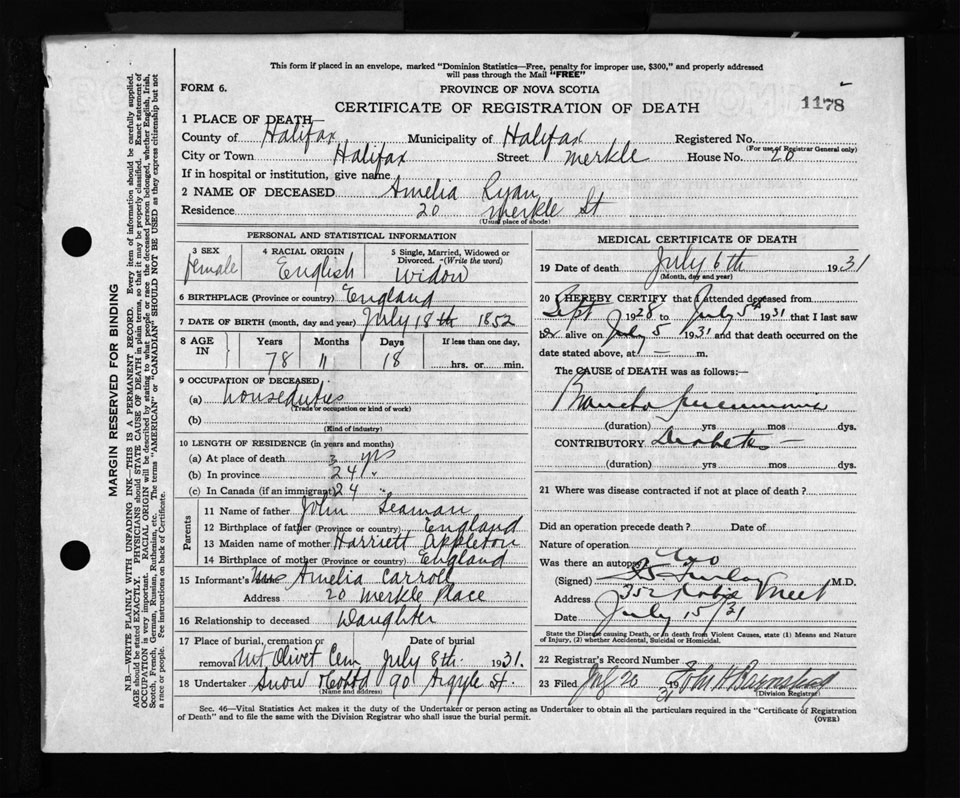 This form if placed in an envelope, marked "Dominion Statistics—Free, penalty for improper use, $300," and properly addressed
will pass through the Mail "FREE"
FORM 6.
PROVINCE OF NOVA SCOTIA
CERTIFICATE OF REGISTRATION OF DEATH
1178
1 PLACE OF DEATH—
County of Halifax Municipality of Halifax Registered No.
(For use of Registrar General only)
City or Town Halifax Street Merkle House No. 20
If in hospital or institution, give name
2 NAME OF DECEASED Amelia Ryan
Residence 20 Merkle St
(Usual place of abode)
PERSONAL AND STATISTICAL INFORMATION
3 SEX
female
4 RACIAL ORIGIN
English
5 Single, Married, Widowed or
Divorced. (Write the word)
Widow
6 BIRTHPLACE (Province or country) England
7 DATE OF BIRTH (month, day and year) July 18th 1852
8 AGE IN
Years Months Days If less than one day,
78 11 18 hrs. or min.
9 OCCUPATION OF DECEASED
(a) Houseduties
(Trade or occupation or kind of work)
(b)
(Kind of industry)
10 LENGTH OF RESIDENCE (in years and months)
(a) At place of death 3 yrs
(b) In province 24
(c) In Canada (if an immigrant) 24
Parents
11 Name of father John Seaman
12 Birthplace of father (Province or country) England
13 Maiden name of mother Harriett Appleton
14 Birthplace of mother (Province or country) England
15 Informant's Name Amelia Carroll
Address 20 Merkle Place
16 Relationship to deceased Daughter
17 Place of burial, cremation or removal Mt Olivet Cem
Date of burial July 8th 1931.
18 Undertaker Snow 90 Argyle St.
(Name and address)
MEDICAL CERTIFICATE OF DEATH
19 Date of death July 6th 1931
(Month, day and year)
20 I HEREBY CERTIFY that I attended deceased from
Sept 1928 to July 5th 1931 that I last saw
alive on July 5 1931 and that death occurred on the
date stated above, at — m.
The CAUSE OF DEATH was as follows:—
Broncho pneumonia
(duration) yrs mos dys.
CONTRIBUTORY Diabetes —
(duration) yrs mos dys.
21 Where was disease contracted if not at place of death?
Did an operation precede death? Date of
Nature of operation
Was there an autopsy? No
(Signed) Finlay M.D.
Address 352 Robie Street
Date July 15/31
State the Disease causing Death, or in death from Violent Causes, state (1) Means and Nature
of Injury, (2) whether Accidental, Suicidal or Homicidal.
22 Registrar's Record Number
23 Filed July 20 1931 John H Barnstead
(Division Registrar)
Sec. 46—Vital Statistics Act makes it the duty of the Undertaker or person acting as Undertaker to obtain all the particulars required in the "Certificate of Registration
of Death" and to file the same with the Division Registrar who shall issue the burial permit.
(OVER)
MARGIN RESERVED FOR BINDING
N.B.—WRITE PLAINLY WITH UNFADING INK—THIS IS A PERMANENT RECORD. Every item of information should be carefully supplied.
AGE should be stated EXACTLY. PHYSICIANS should STATE CAUSE OF DEATH in plain terms, so that it may be properly classified. Exact statement of
OCCUPATION is very important. RACIAL ORIGIN will be described by stating to what people or race the deceased person belonged, whether English, Irish,
Scotch, French, German, Russian, Ruthenian, etc. The terms "AMERICAN" or "CANADIAN" SHOULD NOT BE USED as they express citizenship but not
a race or people. See instructions on back of Certificate.